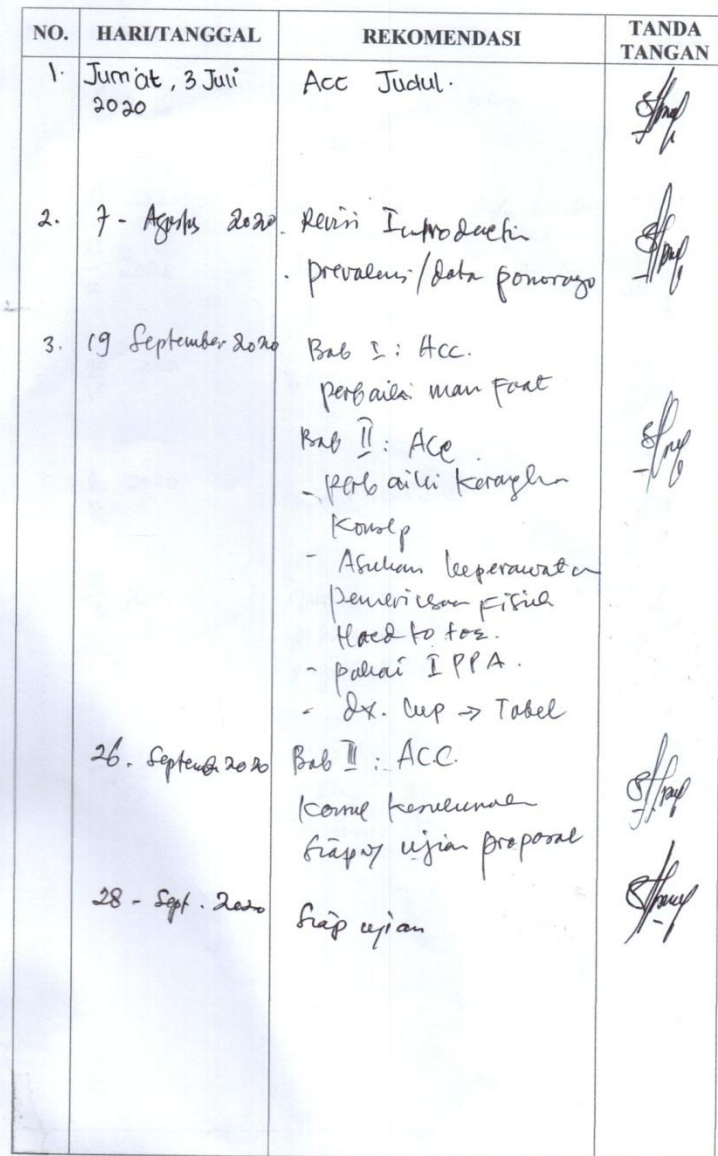 NO. HARI/TANGGAL REKOMENDASI TANDA TANGAN
1. Jum'at, 3 Juli 2020 Acc Judul.
2. 7 - Agustus 2020. Revisi Introduction
. prevalensi/data ponorogo
3. 19 September 2020 Bab I : Acc.
perbaiki manfaat
Bab II : Acc
- perbaiki kerangka
konsep
- Asuhan keperawatan
pemeriksaan fisik
Head to toe.
- pakai IPPA.
- dx. kep → Tabel
26. September 2020 Bab II : ACC.
konsul keseluruhan
siap ujian proposal
28 - Sept. 2020 siap ujian